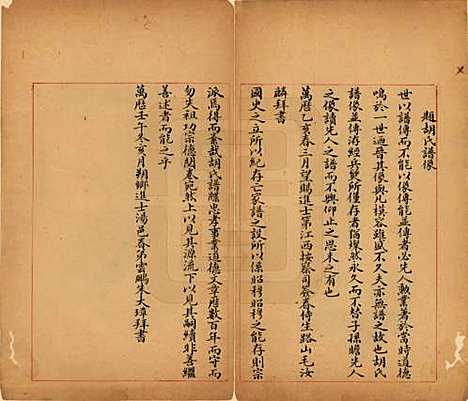 題胡氏譜像
世以譜傳而不能以像傳能並傳者必先人勲業著於當時道德
鳴於一世過晉其像與凡模容雖盛不久夫亦無譜故也胡氏
譜像並傳海經兵燹所僅存者猶燦然永久而不替子孫瞻先人
之像讀先人之譜而不興仰止之思未之有也
萬曆乙亥春三月望賜進士第江西按察司簽春侍生路山毛汝
麟拜書
國史之立所以紀存亡家譜之設所以係昭穆昭穆之能存則宗
派焉得而紊哉胡氏譜牒忠孝事業道德文章歷數百年而守而
勿失祖功宗德開卷宛然上以見其源流下以見其嗣續非善繼
善述者而能之乎
萬曆壬午冬亥月朔鄉進士湯邑眷弟雲鵬丈夫璋拜書